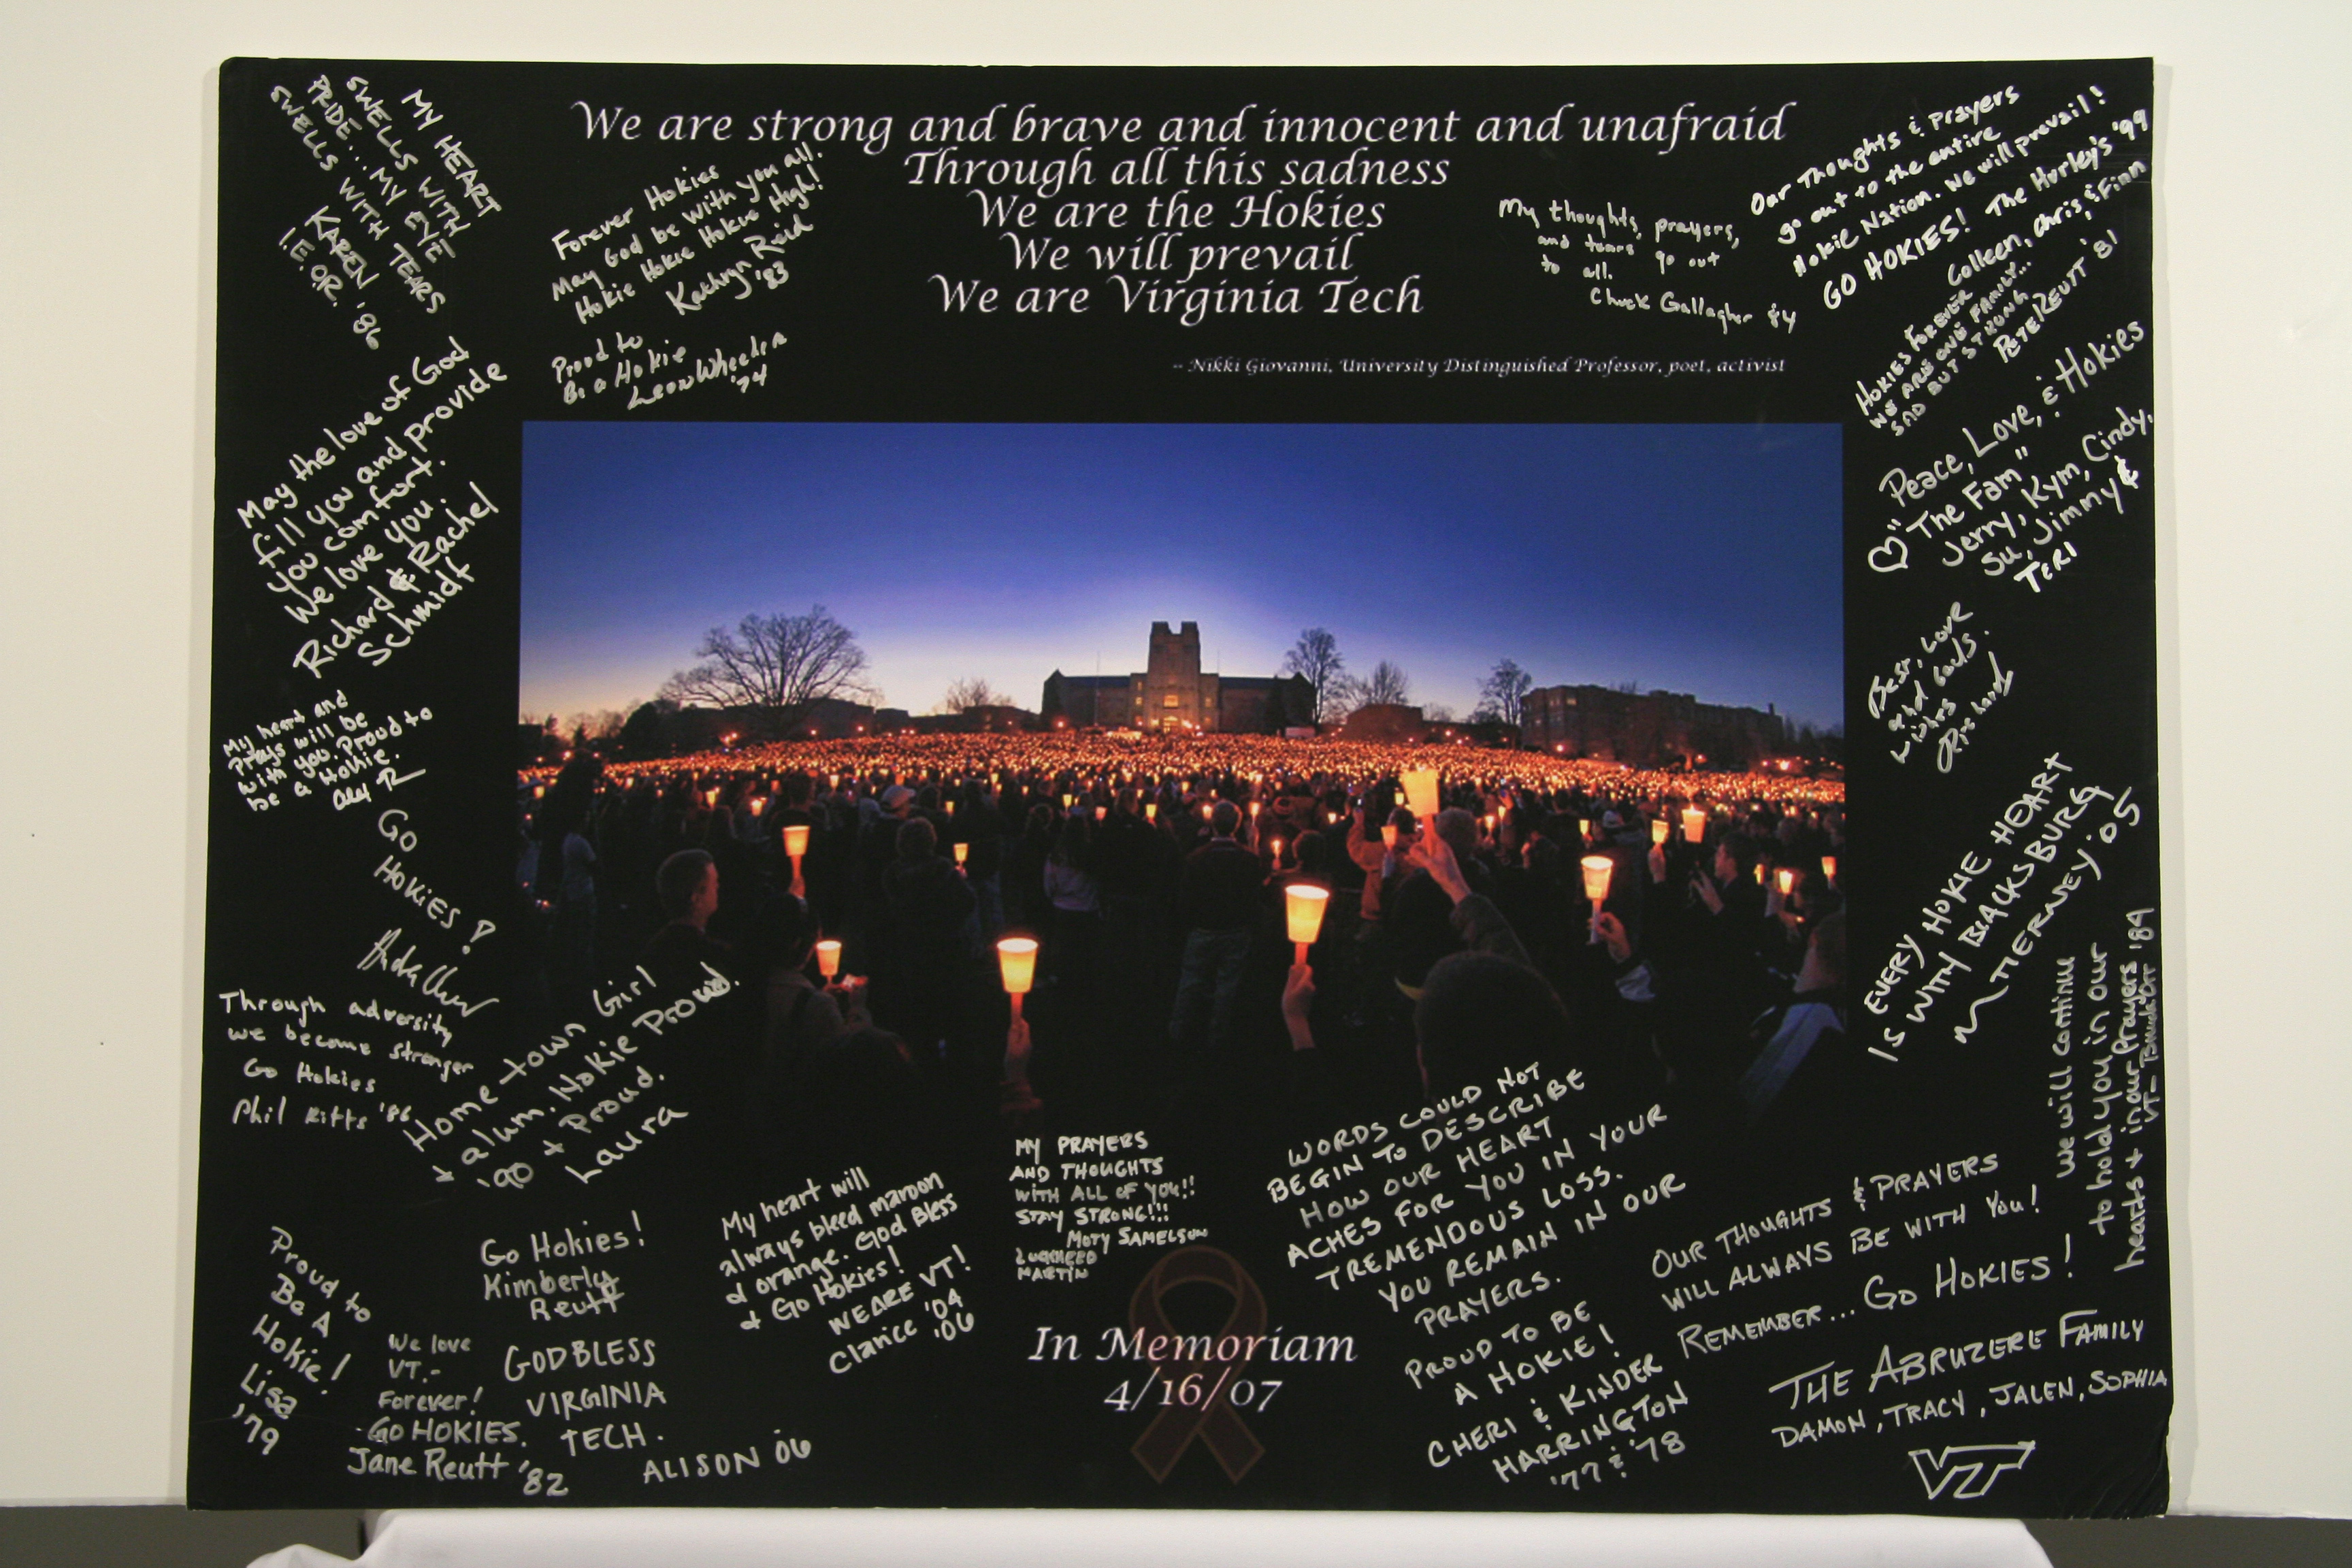 We are strong and brave and innocent and unafraid
Through all this sadness
We are the Hokies
We will prevail
We are Virginia Tech
-- Nikki Giovanni, University Distinguished Professor, poet, activist
MY HEART
SWELLS WITH
PRIDE... MY EYE
SWELLS WITH TEARS
KAREN '86
I.E.O.R.
Forever Hokies
May God be with you all.
Hokie Hokie Hokie High!
Kathryn Reid
'83
Proud to
Be a Hokie
Leon Wheeler
'74
My thoughts, prayers,
and tears go out
to all.
Chuck Gallagher 84
Our Thoughts & Prayers
go out to the entire
Hokie Nation. We will prevail!
GO HOKIES! The Hurley's '99
Colleen, Chris & Finn
HOKIES FOREVER
WE ARE ONE FAMILY...
SAD BUT STRONG
PETE REUTT '81
"Peace, Love, & Hokies
♡ The Fam"
Jerry, Kym, Cindy,
Su, Jimmy &
TERI
Best, Love
and
wishes
Richard
EVERY HOKIE HEART
IS WITH BLACKSBURG
TIERNEY '05
We will continue
to hold you in our
hearts + in our prayers '89
VT-
May the love of God
fill you and provide
you comfort.
We love you.
Richard & Rachel
Schmidt
My heart and
Prays will be
with you. Proud to
be a Hokie.
GO
HOKIES!
Through adversity
we become stronger
Go Hokies
Phil Kitts '86
Home town Girl
+ alum. Hokie Proud.
'90 + Proud.
Laura
MY PRAYERS
AND THOUGHTS
WITH ALL OF YOU!!
STAY STRONG!!!
MOTY SAMELSON
LOCKHEED
MARTIN
WORDS COULD NOT
BEGIN TO DESCRIBE
HOW OUR HEART
ACHES FOR YOU IN YOUR
TREMENDOUS LOSS.
YOU REMAIN IN OUR
PRAYERS.
PROUD TO BE
A HOKIE!
CHERI & KINDER
HARRINGTON
'77 & '78
OUR THOUGHTS & PRAYERS
WILL ALWAYS BE WITH YOU!
REMEMBER... GO HOKIES!
THE ABRUZERE FAMILY
DAMON, TRACY, JALEN, SOPHIA
VT
My heart will
always bleed maroon
& orange. God Bless
& Go Hokies!
WE ARE VT!
Clarice '04
'06
Go Hokies!
Kimberly
Reutt
Proud to
Be A
Hokie!
Lisa
'79
We love
VT.-
Forever!
GO HOKIES.
Jane Reutt '82
GOD BLESS
VIRGINIA
TECH.
ALISON 06
In Memoriam
4/16/07